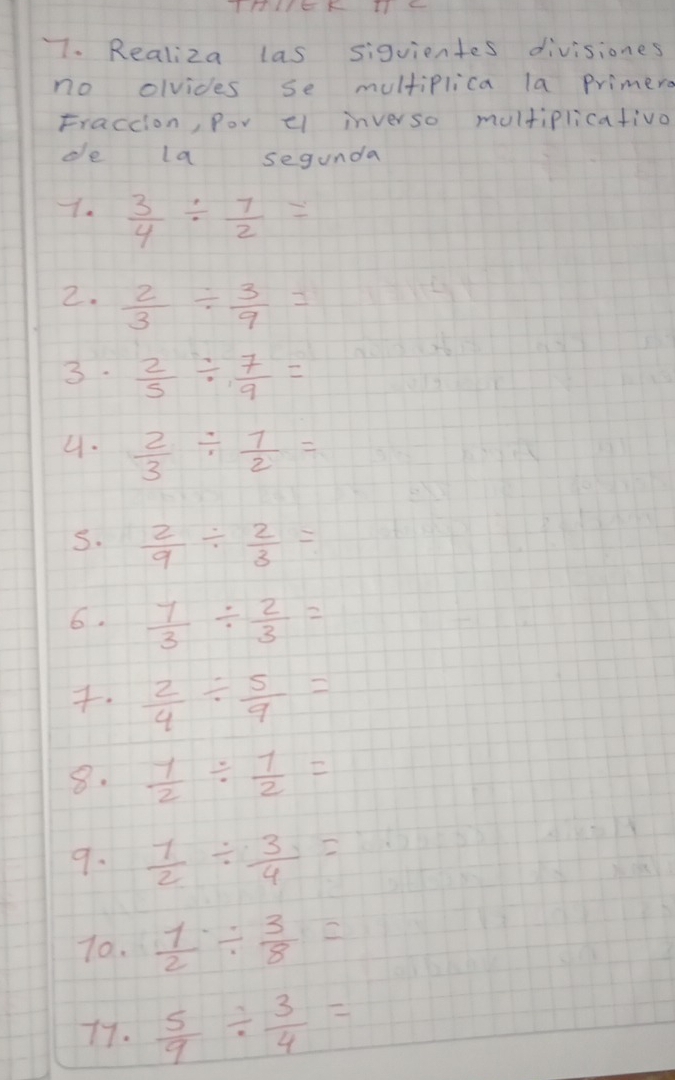 TALLER # 2
1. Realiza las siguientes divisiones
no olvides se multiplica la Primera
Fraccion, Por el inverso multiplicativo
de la segunda
1. 3/4 ÷ 1/2 =
2. 2/3 ÷ 3/9 =
3. 2/5 ÷ 7/9 =
4. 2/3 ÷ 1/2 =
5. 2/9 ÷ 2/3 =
6. 1/3 ÷ 2/3 =
7. 2/4 ÷ 5/9 =
8. 1/2 ÷ 1/2 =
9. 1/2 ÷ 3/4 =
10. 1/2 ÷ 3/8 =
11. 5/9 ÷ 3/4 =